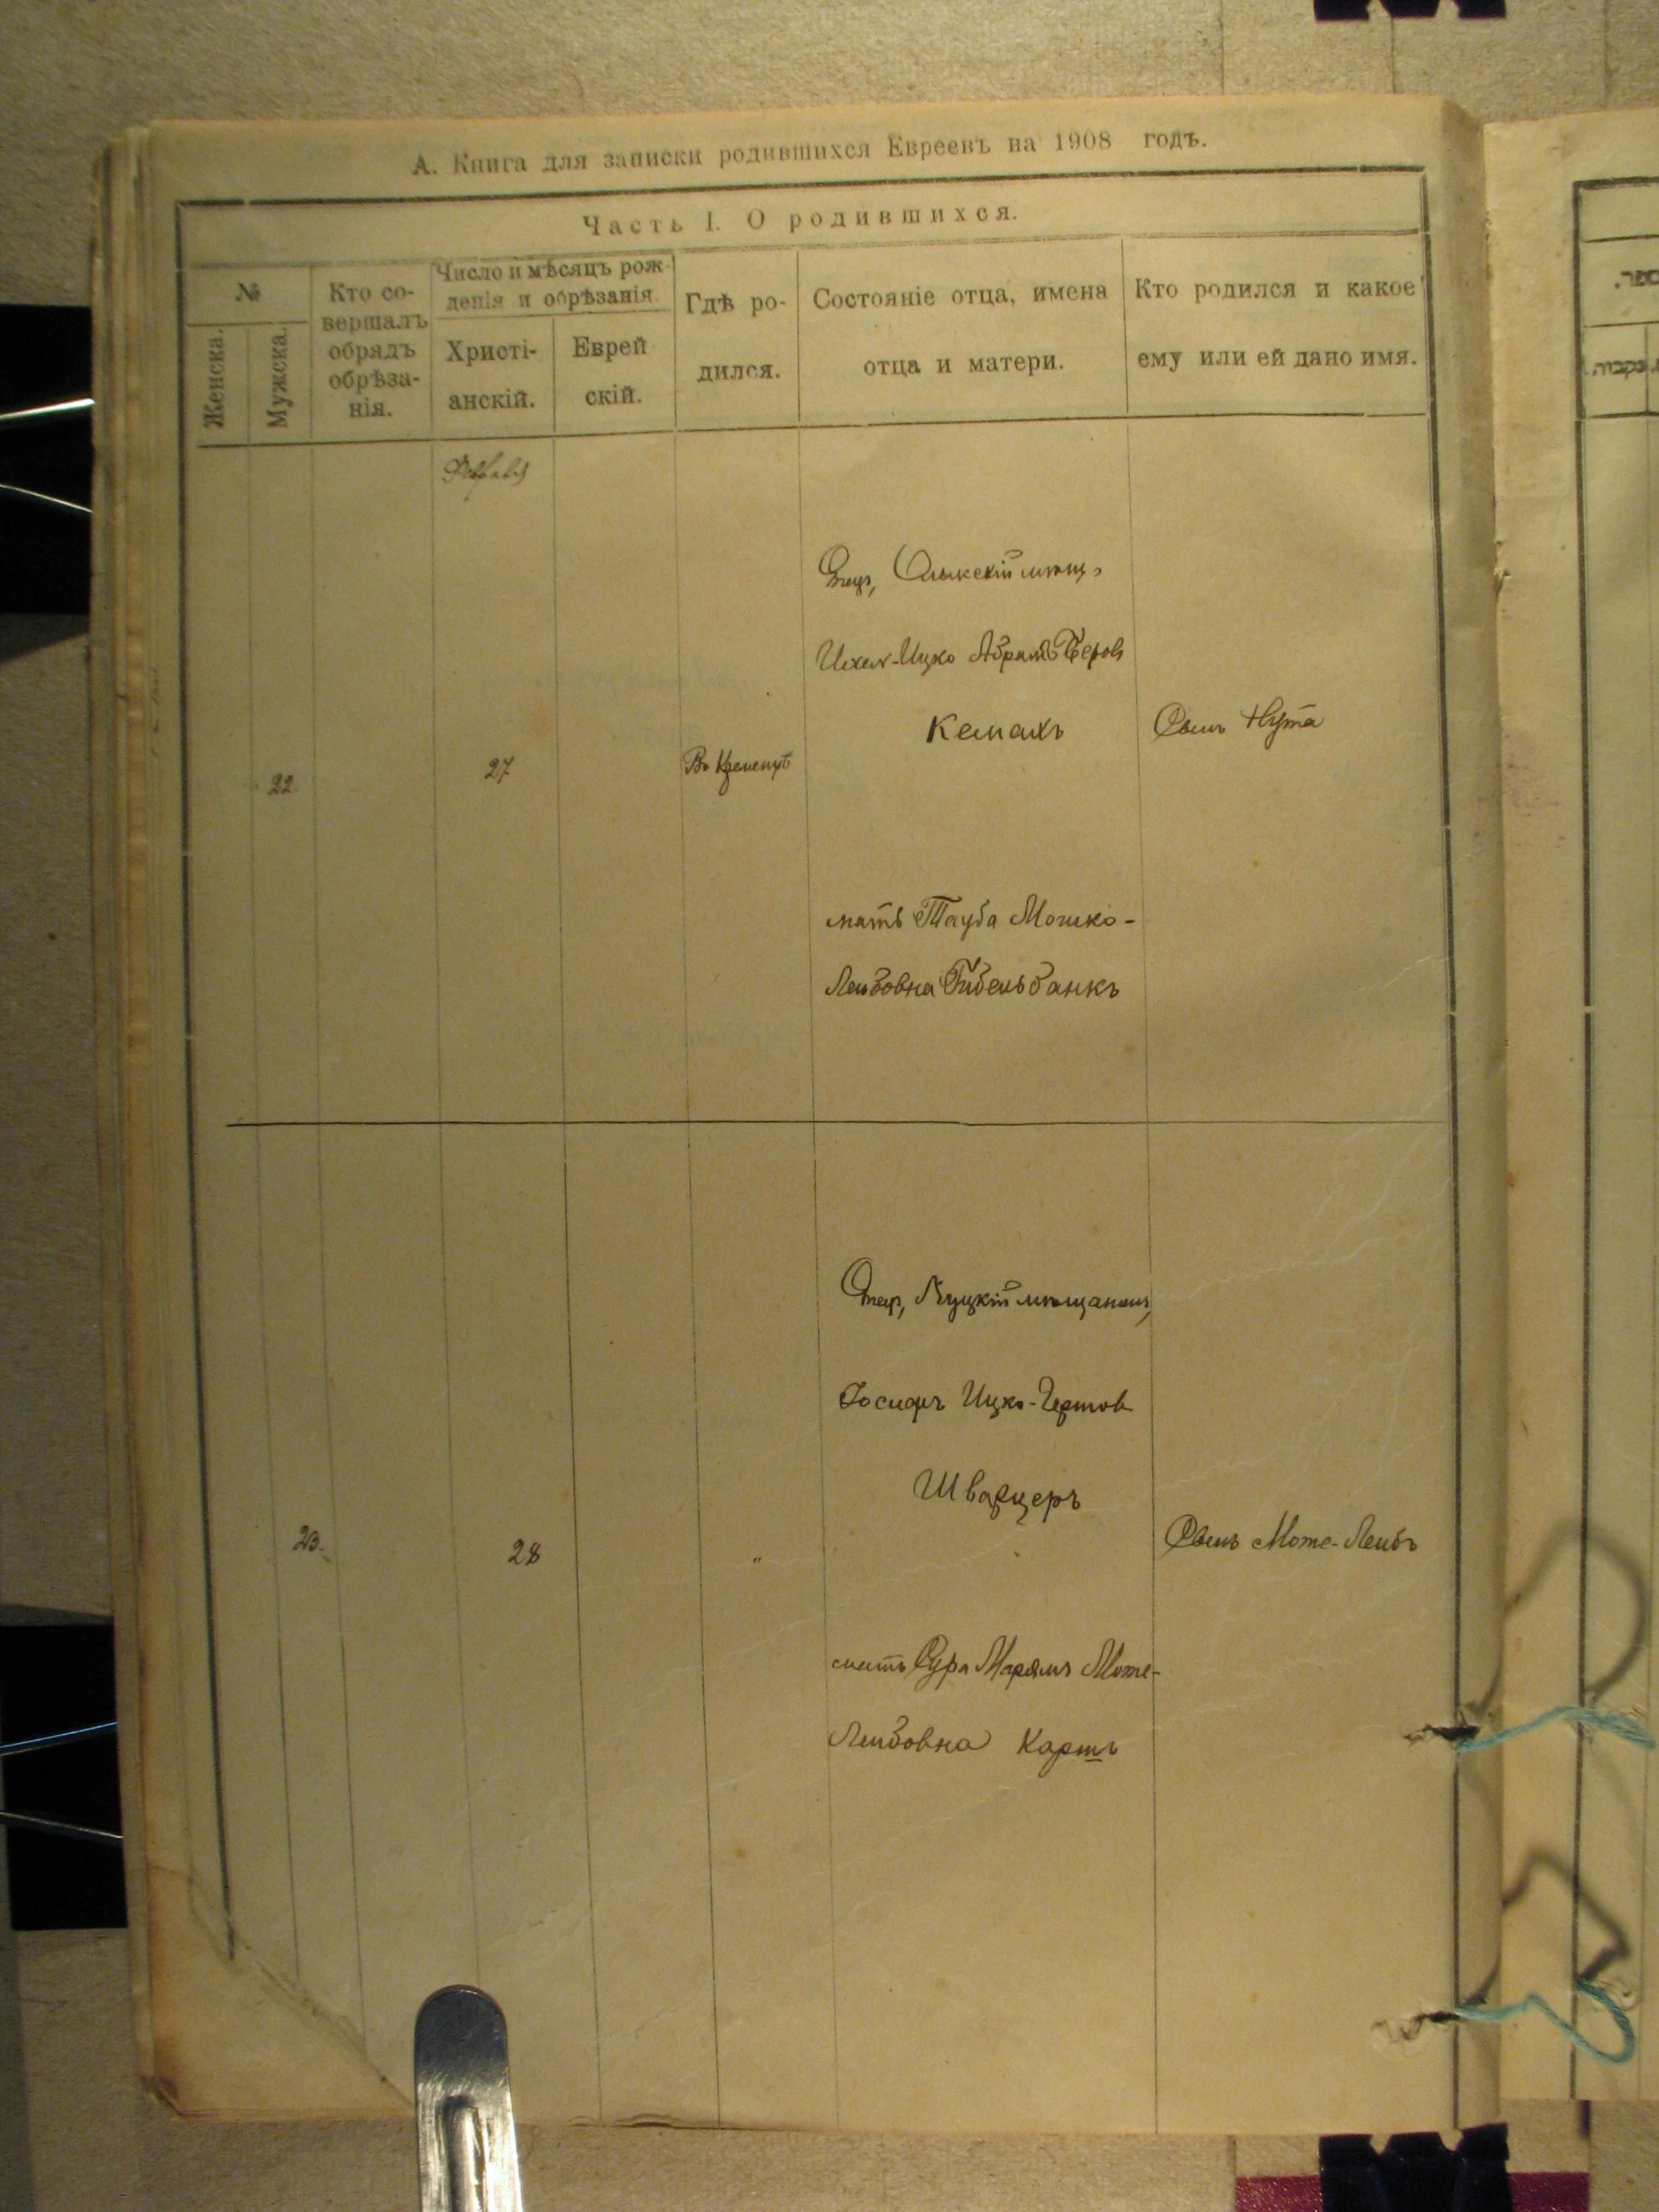 А. Книга для записки родившихся Евреевъ на 1908 годъ.
Часть I. О родившихся.
№
Женска.
Мужска.
Кто со-
вершалъ
обрядъ
обрѣза-
нія.
Число и мѣсяцъ рож-
денія и обрѣзанія.
Христі-
анскій.
Еврей
скій.
Гдѣ ро-
дился.
Состояніе отца, имена
отца и матери.
Кто родился и какое
ему или ей дано имя.
Февраля
22.
27
Въ Кременцѣ
Отецъ, Олыкскій мѣщ.
Ихель-Ицко Абрамъ-Беровъ
Кемахъ
мать Тауба Мошко-
Лейбовна Гибельбанкъ
Сынъ Нута
23.
28
"
Отецъ, Луцкій мѣщанинъ,
Іосифъ Ицко-
Шварцеръ
мать Сура Марямъ Моте-
Лейбовна Картъ
Сынъ Моте-Лейбъ